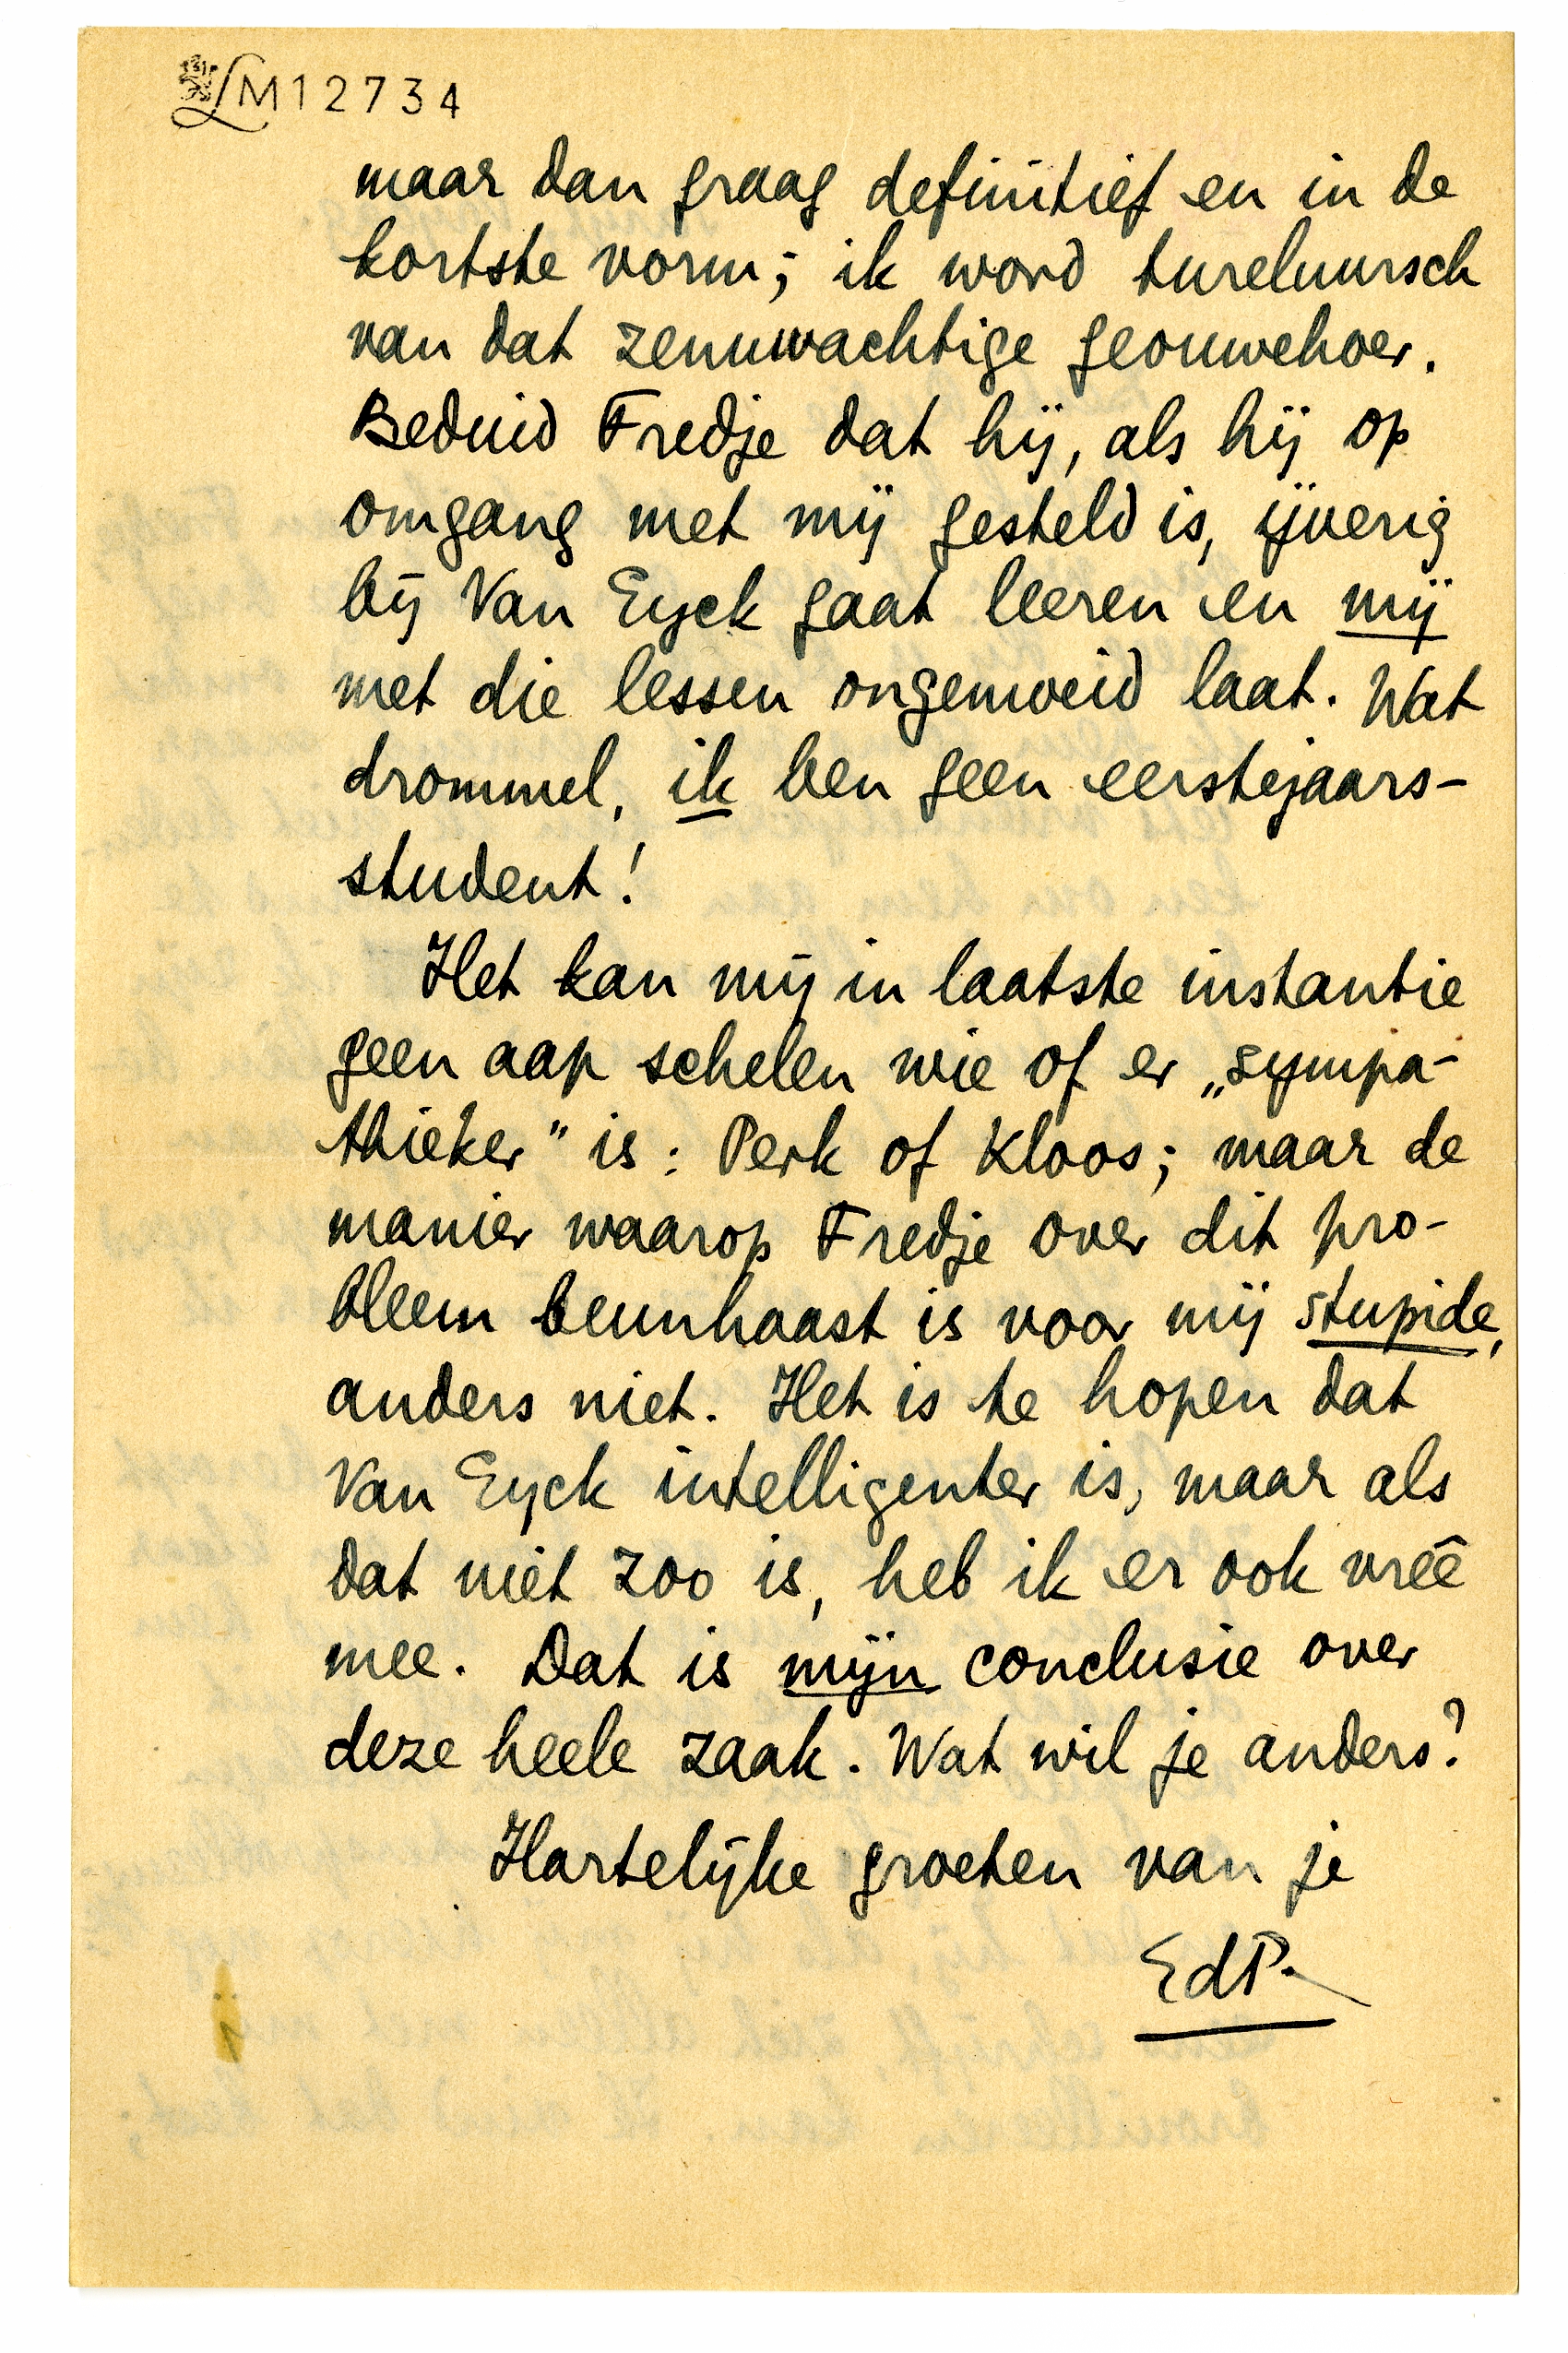 LM12734
maar dan graag definitief en in de
kortste vorm; ik word tureluursch
van dat zenuwachtige geouwehoer.
Beduid Fredje dat hij, als hij op
omgang met mij gesteld is, ijverig
bij Van Eyck gaat leeren en mij
met die lessen ongemoeid laat. Wat
drommel, ik ben geen eerstejaars-
student!
Het kan mij in laatste instantie
geen aap schelen wie of er „sympa-
thieker” is: Perk of Kloos; maar de
manier waarop Fredje over dit pro-
bleem beunhaast is voor mij stupide,
anders niet. Het is te hopen dat
Van Eyck intelligenter is, maar als
dat niet zoo is, heb ik er ook vreê
mee. Dat is mijn conclusie over
deze heele zaak. Wat wil je anders?
Hartelijke groeten van je
EdP.